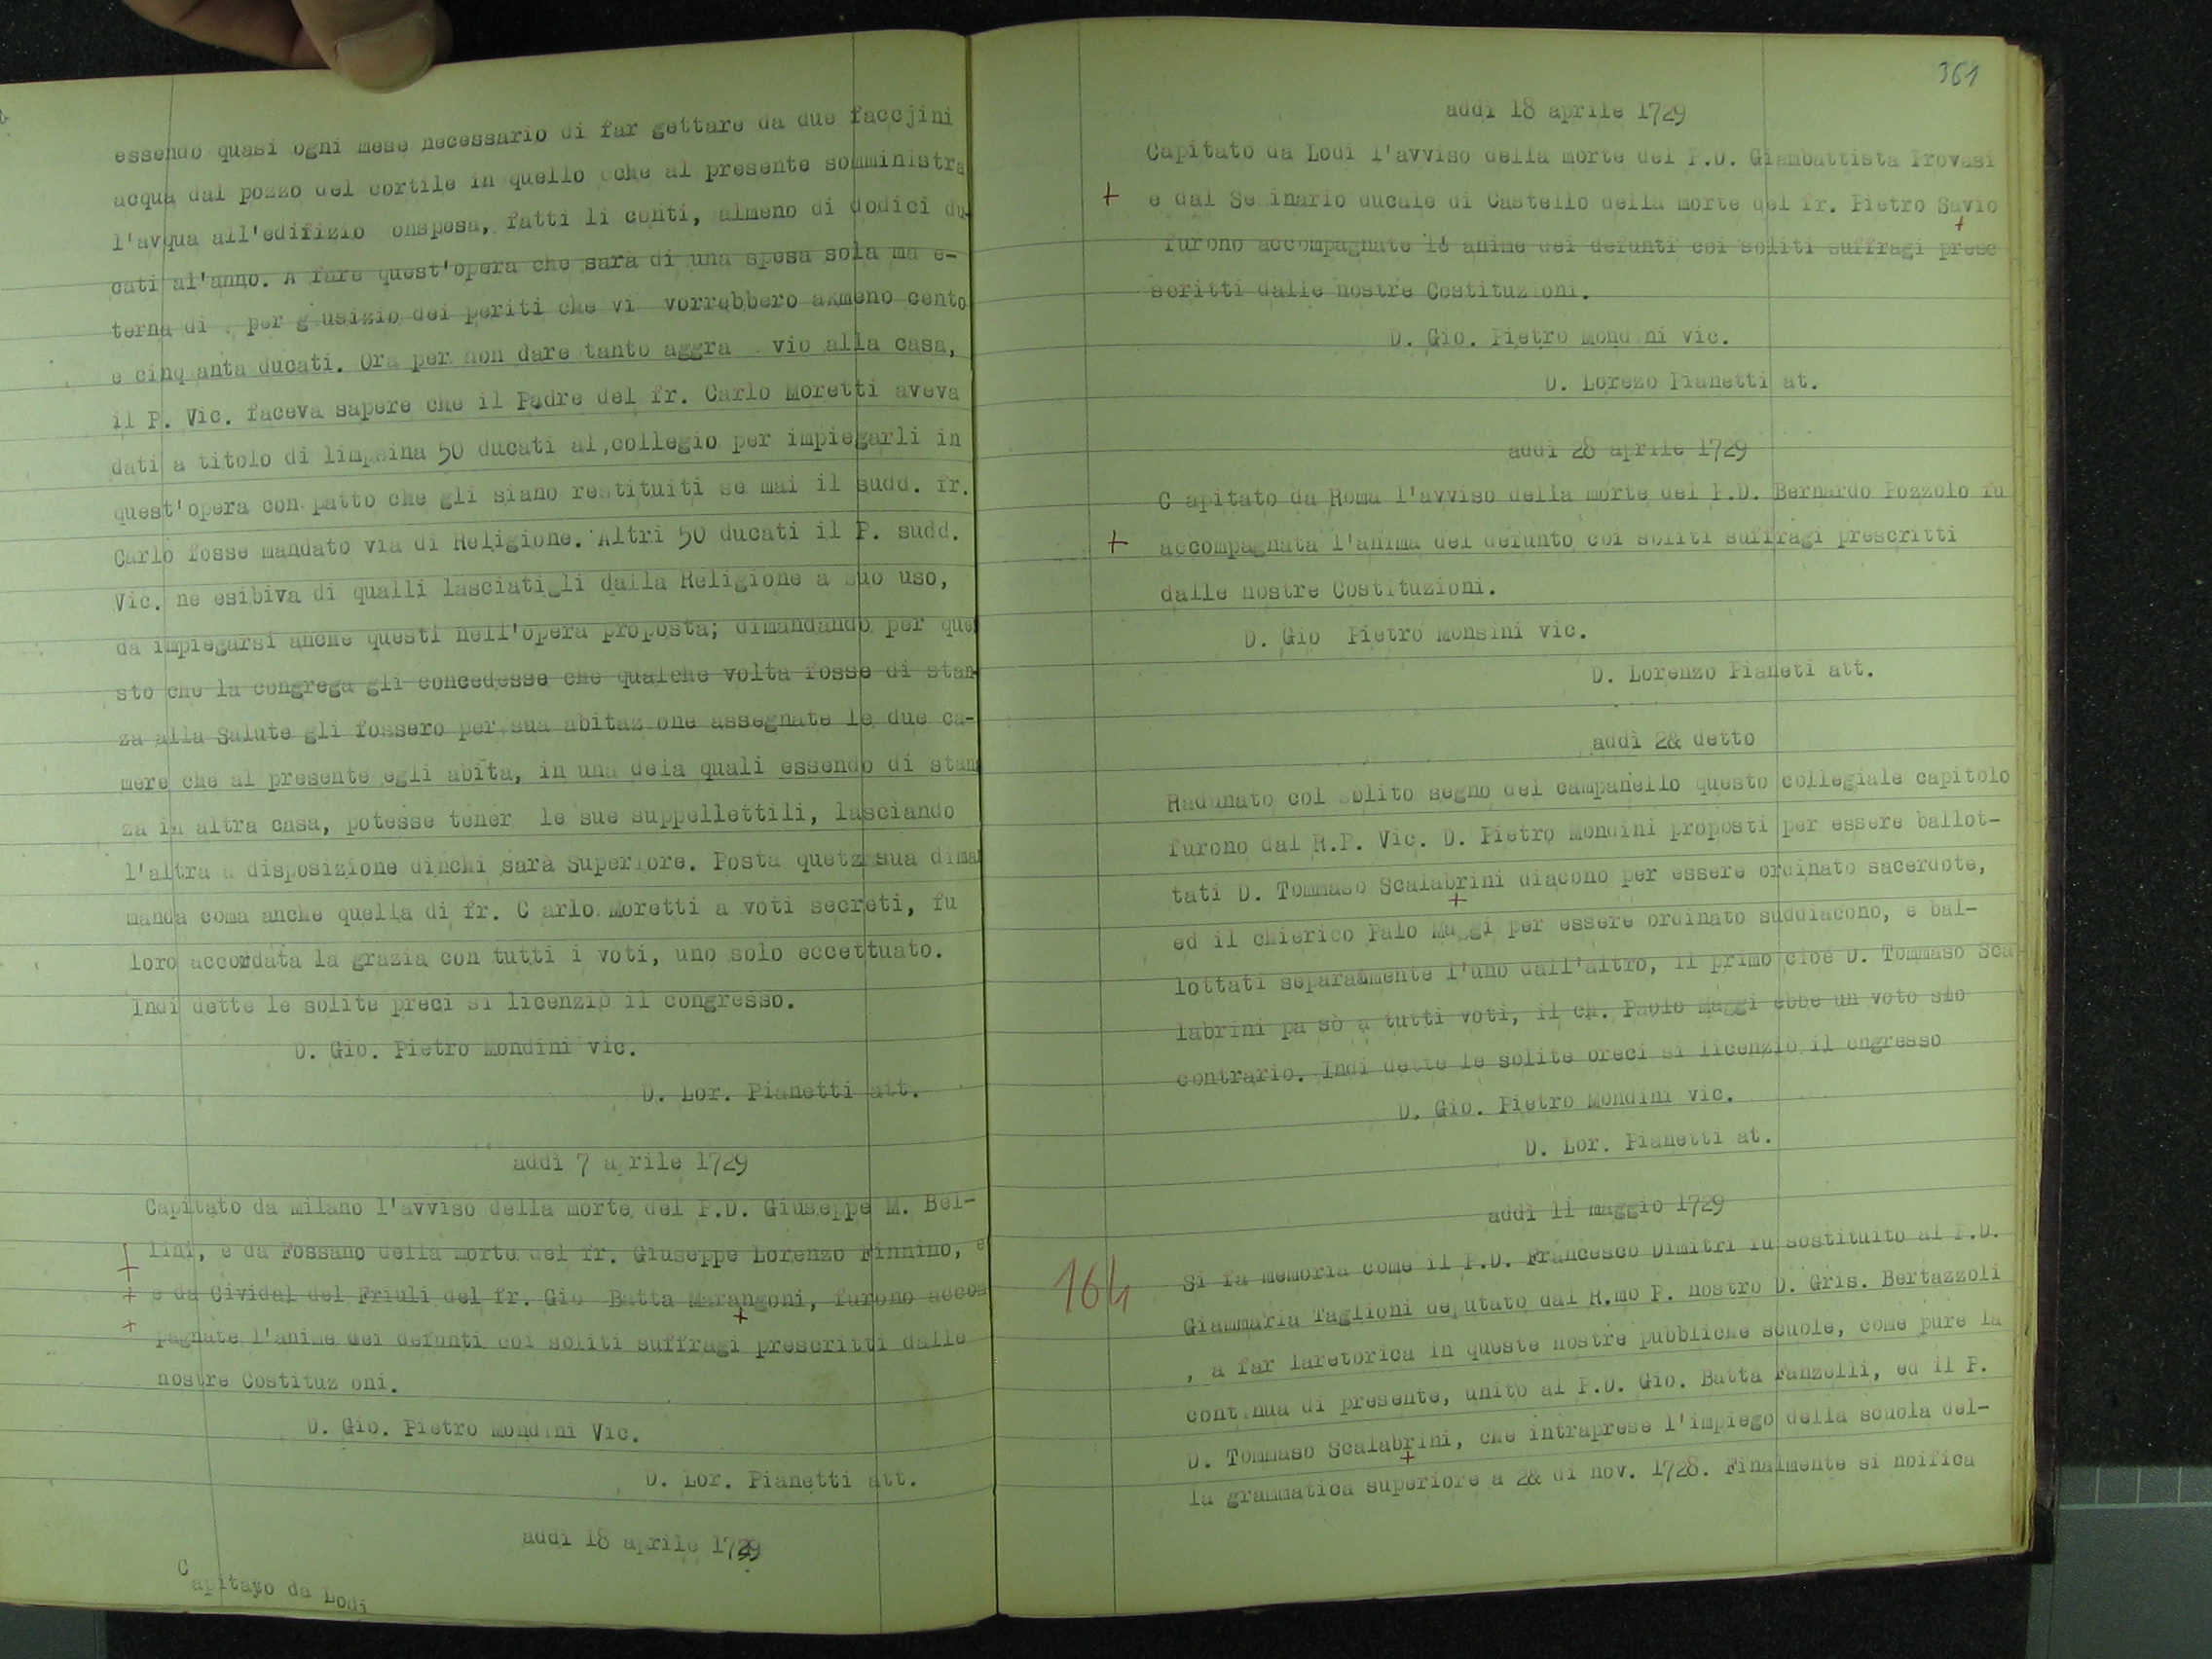 essendo quasi ogni mese necessario di far gettare da due faccjini
acqua dal pozzo del cortile in quello che al presente somministra
l'avqua all'edifizio onspesa, fatti li conti, almeno di dodici du-
cati al'anno. A fare quest'opera che sarà di una spesa sola ma e-
terna di per giusizio dei periti che vi vorrebbero akmeno cento
e cinq anta ducati. Ora per non dare tanto aggra vio alla casa,
il P. Vic. faceva sapere che il Padre del fr. Carlo Moretti aveva
dati a titolo di limpsina 50 ducati al,collegio per impiegarli in
quest'opera con patto che gli siano restituiti se mai il sudd. fr.
Carlo fosse mandato via di Religione. Altri 50 ducati il P. sudd.
Vic. ne esibiva di qualli lasciatigli dalla Religione a suo uso,
da impiegarsi anche questi nell'opera proposta; dimandando per que
sto che la congrega gli concedesse che qualche volta fosse di stan
za alla Salute gli fossero per sua abitaz one assegnate le due ca-
mere che al presente egli abita, in una dela quali essendo di stan
za in altra casa, potesse tener le sue suppellettili, lasciando
l'altra a disposizione dinchi sarà Superiore. Posta quetz sua dima
manda coma anche quella di fr. C arlo Moretti a voti secreti, fu
loro accordata la grazia con tutti i voti, uno solo eccettuato.
Indi dette le solite preci si licenziò il congresso.
D. Gio. Pietro Mondini vic.
D. Lor. Pianetti att.
addì 7 aprile 1729
Capitato da Milano l'avviso della morte del P.D. Giuseppe M. Bel-
lini, e da Fossano della morte del fr. Giuseppe Lorenzo Finnino, e
e da Cividal del Friuli del fr. Gio Batta Marangoni, furono accom
pagnate l'anime dei defunti coi soliti suffragi prescritti dalle
nostre Costituz oni.
D. Gio. Pietro Mondini Vic.
D. Lor. Pianetti att.
addì 18 aprile 1729
Capitayo da Lodi
361
addì 18 aprile 1729
Capitato da Lodi l'avviso della morte del P.D. Giambattista Provasi
+ e dal Se inario ducale di Castello della morte del fr. Pietro Savio
furono accompagnate le anime dei defunti coi soliti suffragi presc
scritti dalle nostre Costituzioni.
D. Gio. Pietro Mondini vic.
D. Lorezo Pianetti at.
addì 28 aprile 1729
C apitato da Roma l'avviso della morte del P.D. Bernardo Pozzolo fu
+ accompagnata l'anima del defunto coi soliti suffragi prescritti
dalle nostre Costituzioni.
D. Gio Pietro Monsini vic.
D. Lorenzo Pianeti att.
addì 2& detto
Radunato col solito segno del campanello questo collegiale capitolo
furono dal R.P. Vic. D. Pietro Mondini proposti per essere ballot-
tati D. Tommaso Scalabrini diacono per essere ordinato sacerdote,
ed il chierico Palo Maggi per essere ordinato suddiacono, e bal-
lottati separammente l'uno dall'altro, il primo cioé D. Tommaso Sca
labrini pa sò a tutti voti, il ch. Paolo Maggi ebbe un voto slo
contrario. Indi dette le solite oreci si licenziò il cngresso
D. Gio. Pietro Mondini vic.
D. Lor. Pianetti at.
addì 11 maggio 1729
164 Si fa memoria come il P.D. Francesco Dimitri fu sostituito al P.D.
Giammaria Taglioni deputato dal R.mo P. nostro D. Gris. Bertazzoli
, a far laretorica in queste nostre pubbliche scuole, come pure la
continua di presente, unito al P.D. Gio. Batta Fanzelli, ed il P.
D. Tommaso Scalabrini, che intraprese l'impiego della scuola del-
la grammatica superiore a 2& di nov. 1728. Finalmente si noifica